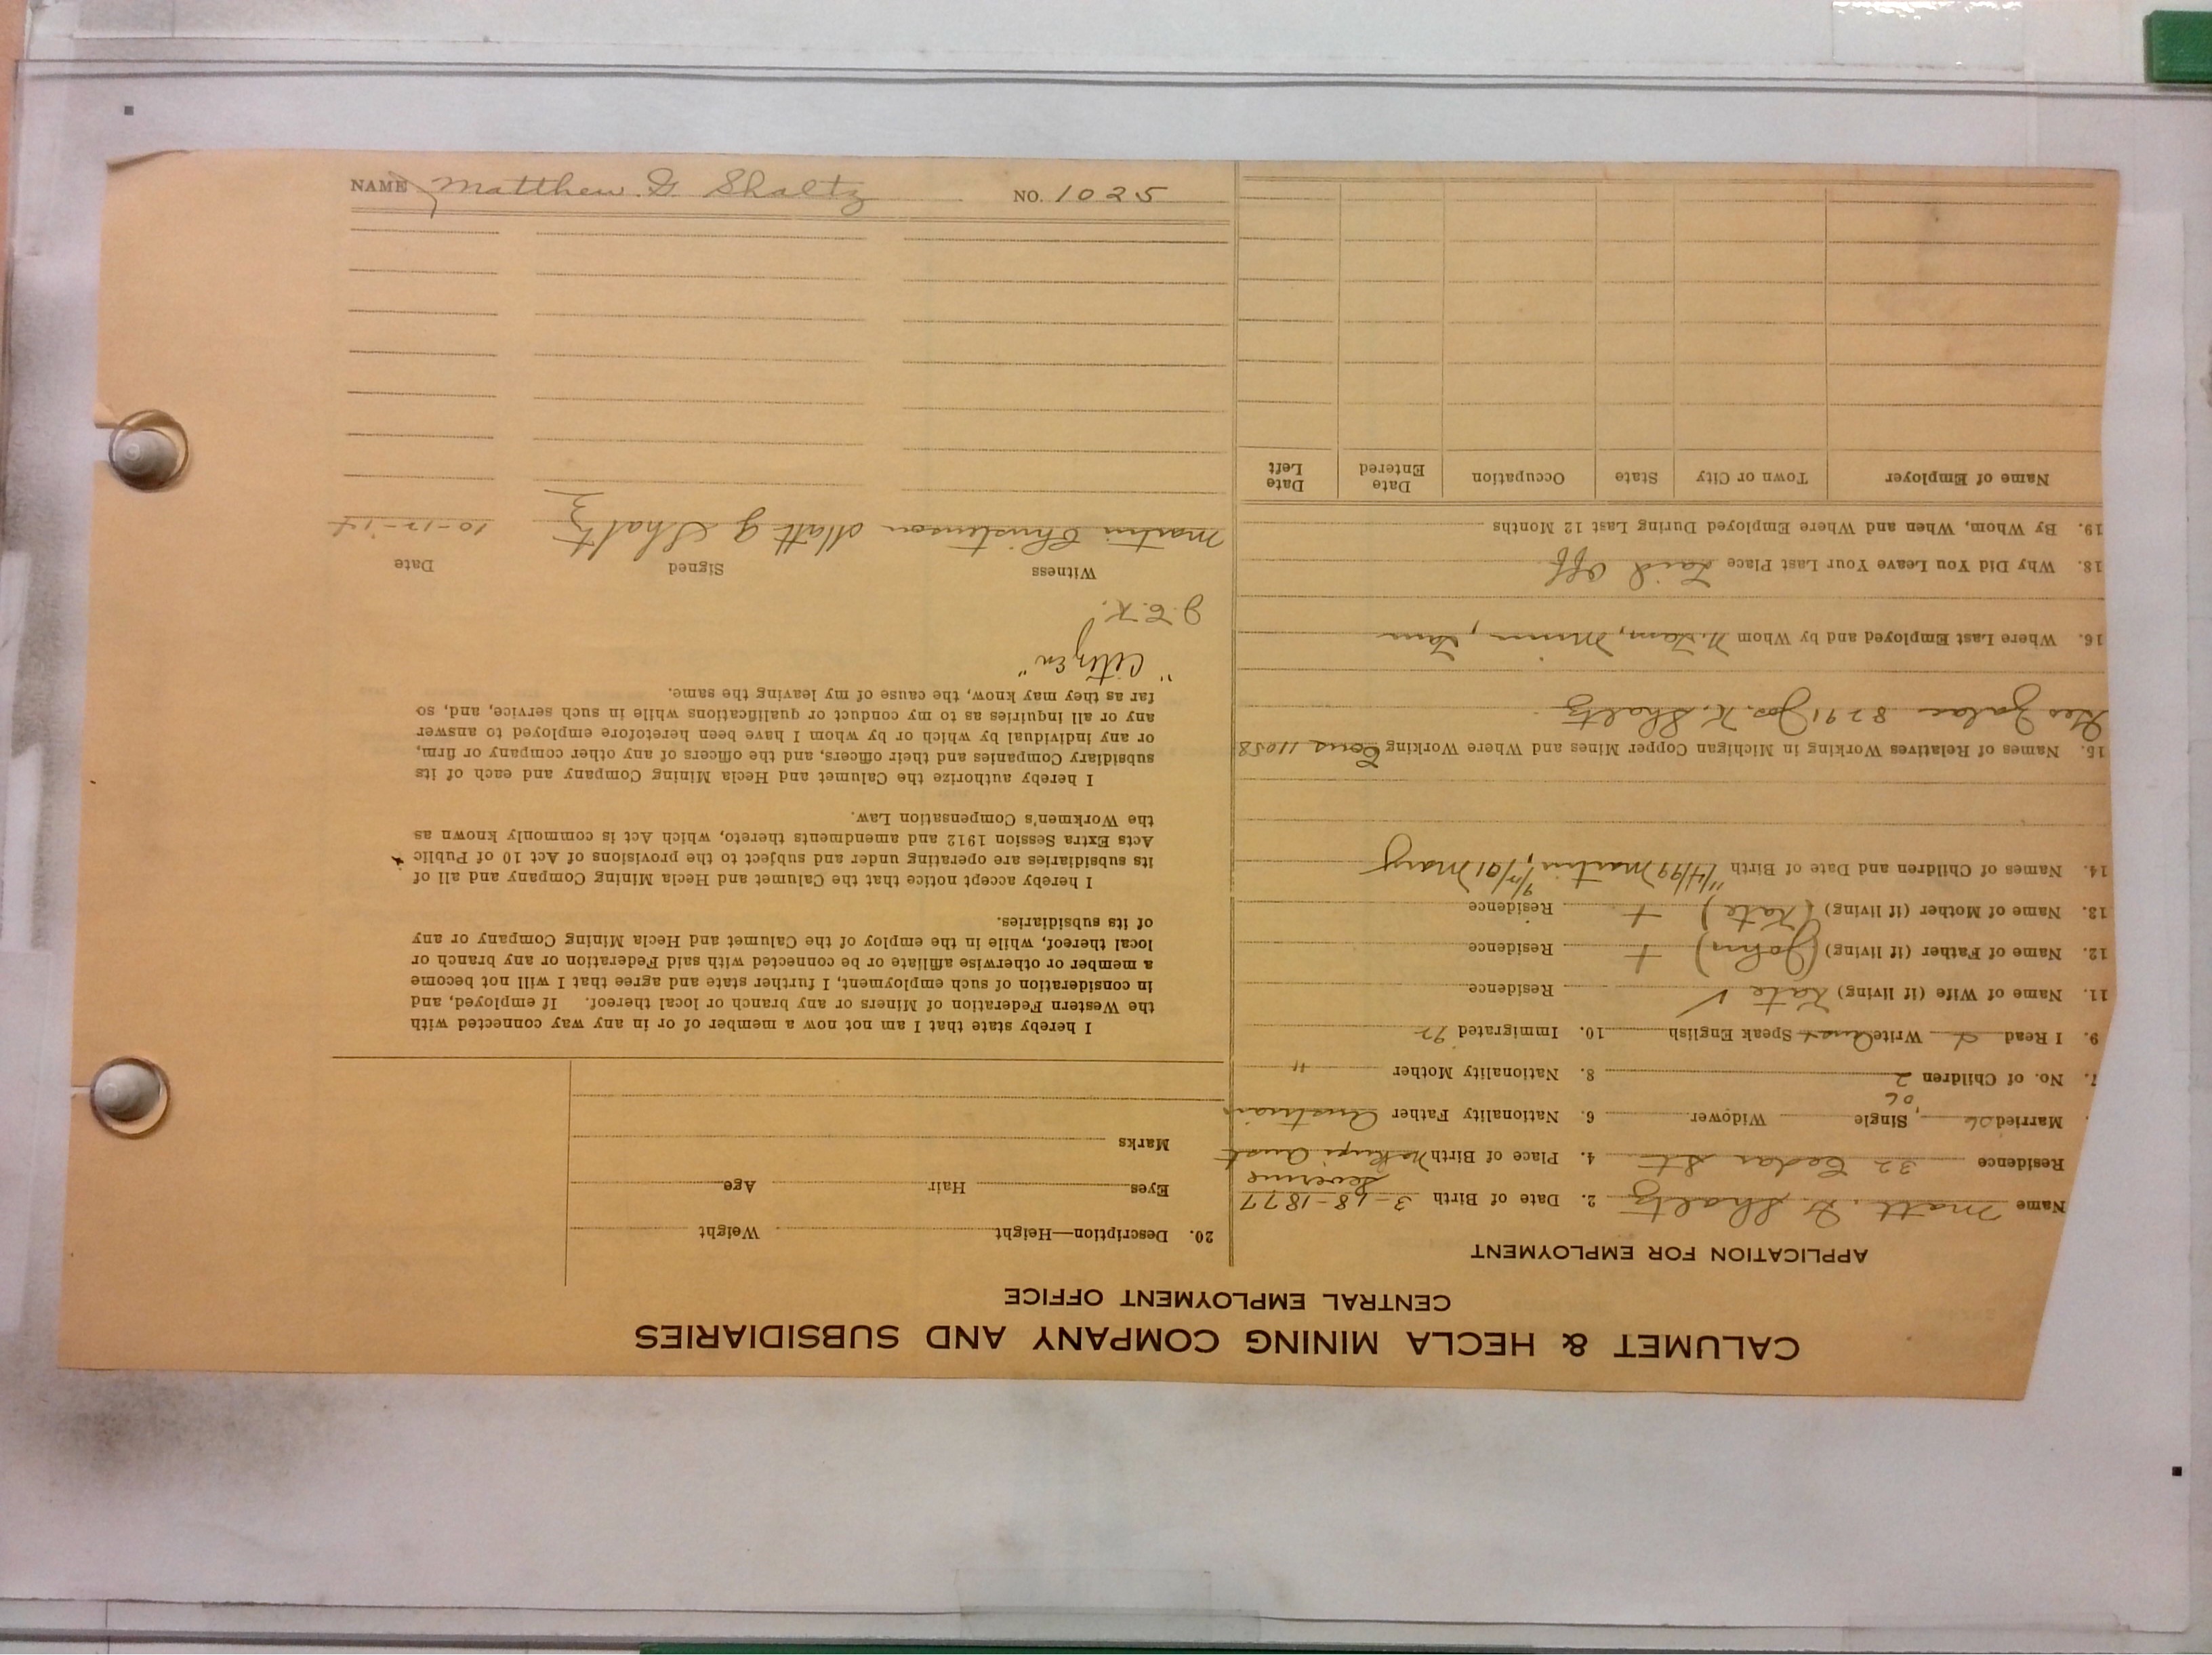 CALUMET & HECLA MINING COMPANY AND SUBSIDIARIES
CENTRAL EMPLOYMENT OFFICE
APPLICATION FOR EMPLOYMENT
Name Matt. G. Shaltz 2. Date of Birth 3-18-1877
Residence 32 Cedar St 4. Place of Birth Aust
Married Single Widower 6. Nationality Father Austrian
7. No. of Children 2 8. Nationality Mother "
9. I Read Write Speak English 10. Immigrated
11. Name of Wife (if living) Kate Residence
12. Name of Father (if living) (John) + Residence
13. Name of Mother (if living) (Kate) + Residence
14. Names of Children and Date of Birth 11/4/99 Martin, Mary
15. Names of Relatives Working in Michigan Copper Mines and Where Working 11058
Geo 8291 Jos. K. Shaltz
16. Where Last Employed and by Whom
18. Why Did You Leave Your Last Place Laid Off
19. By Whom, When and Where Employed During Last 12 Months
Name of Employer Town or City State Occupation Date Entered Date Left
20. Description—Height Weight
Eyes Hair Age
Marks
I hereby state that I am not now a member of or in any way connected with
the Western Federation of Miners or any branch or local thereof. If employed, and
in consideration of such employment, I further state and agree that I will not become
a member or otherwise affiliate or be connected with said Federation or any branch or
local thereof, while in the employ of the Calumet and Hecla Mining Company or any
of its subsidiaries.
I hereby accept notice that the Calumet and Hecla Mining Company and all of
its subsidiaries are operating under and subject to the provisions of Act 10 of Public
Acts Extra Session 1912 and amendments thereto, which Act is commonly known as
the Workmen's Compensation Law.
I hereby authorize the Calumet and Hecla Mining Company and each of its
subsidiary Companies and their officers, and the officers of any other company or firm,
or any individual by which or by whom I have been heretofore employed to answer
any or all inquiries as to my conduct or qualifications while in such service, and, so
far as they may know, the cause of my leaving the same.
"Citizen"
J.E.K.
Witness Signed Date
Martin Christenson Matt G Shaltz 10-12-14
NAME Matthew G Shaltz NO. 1025